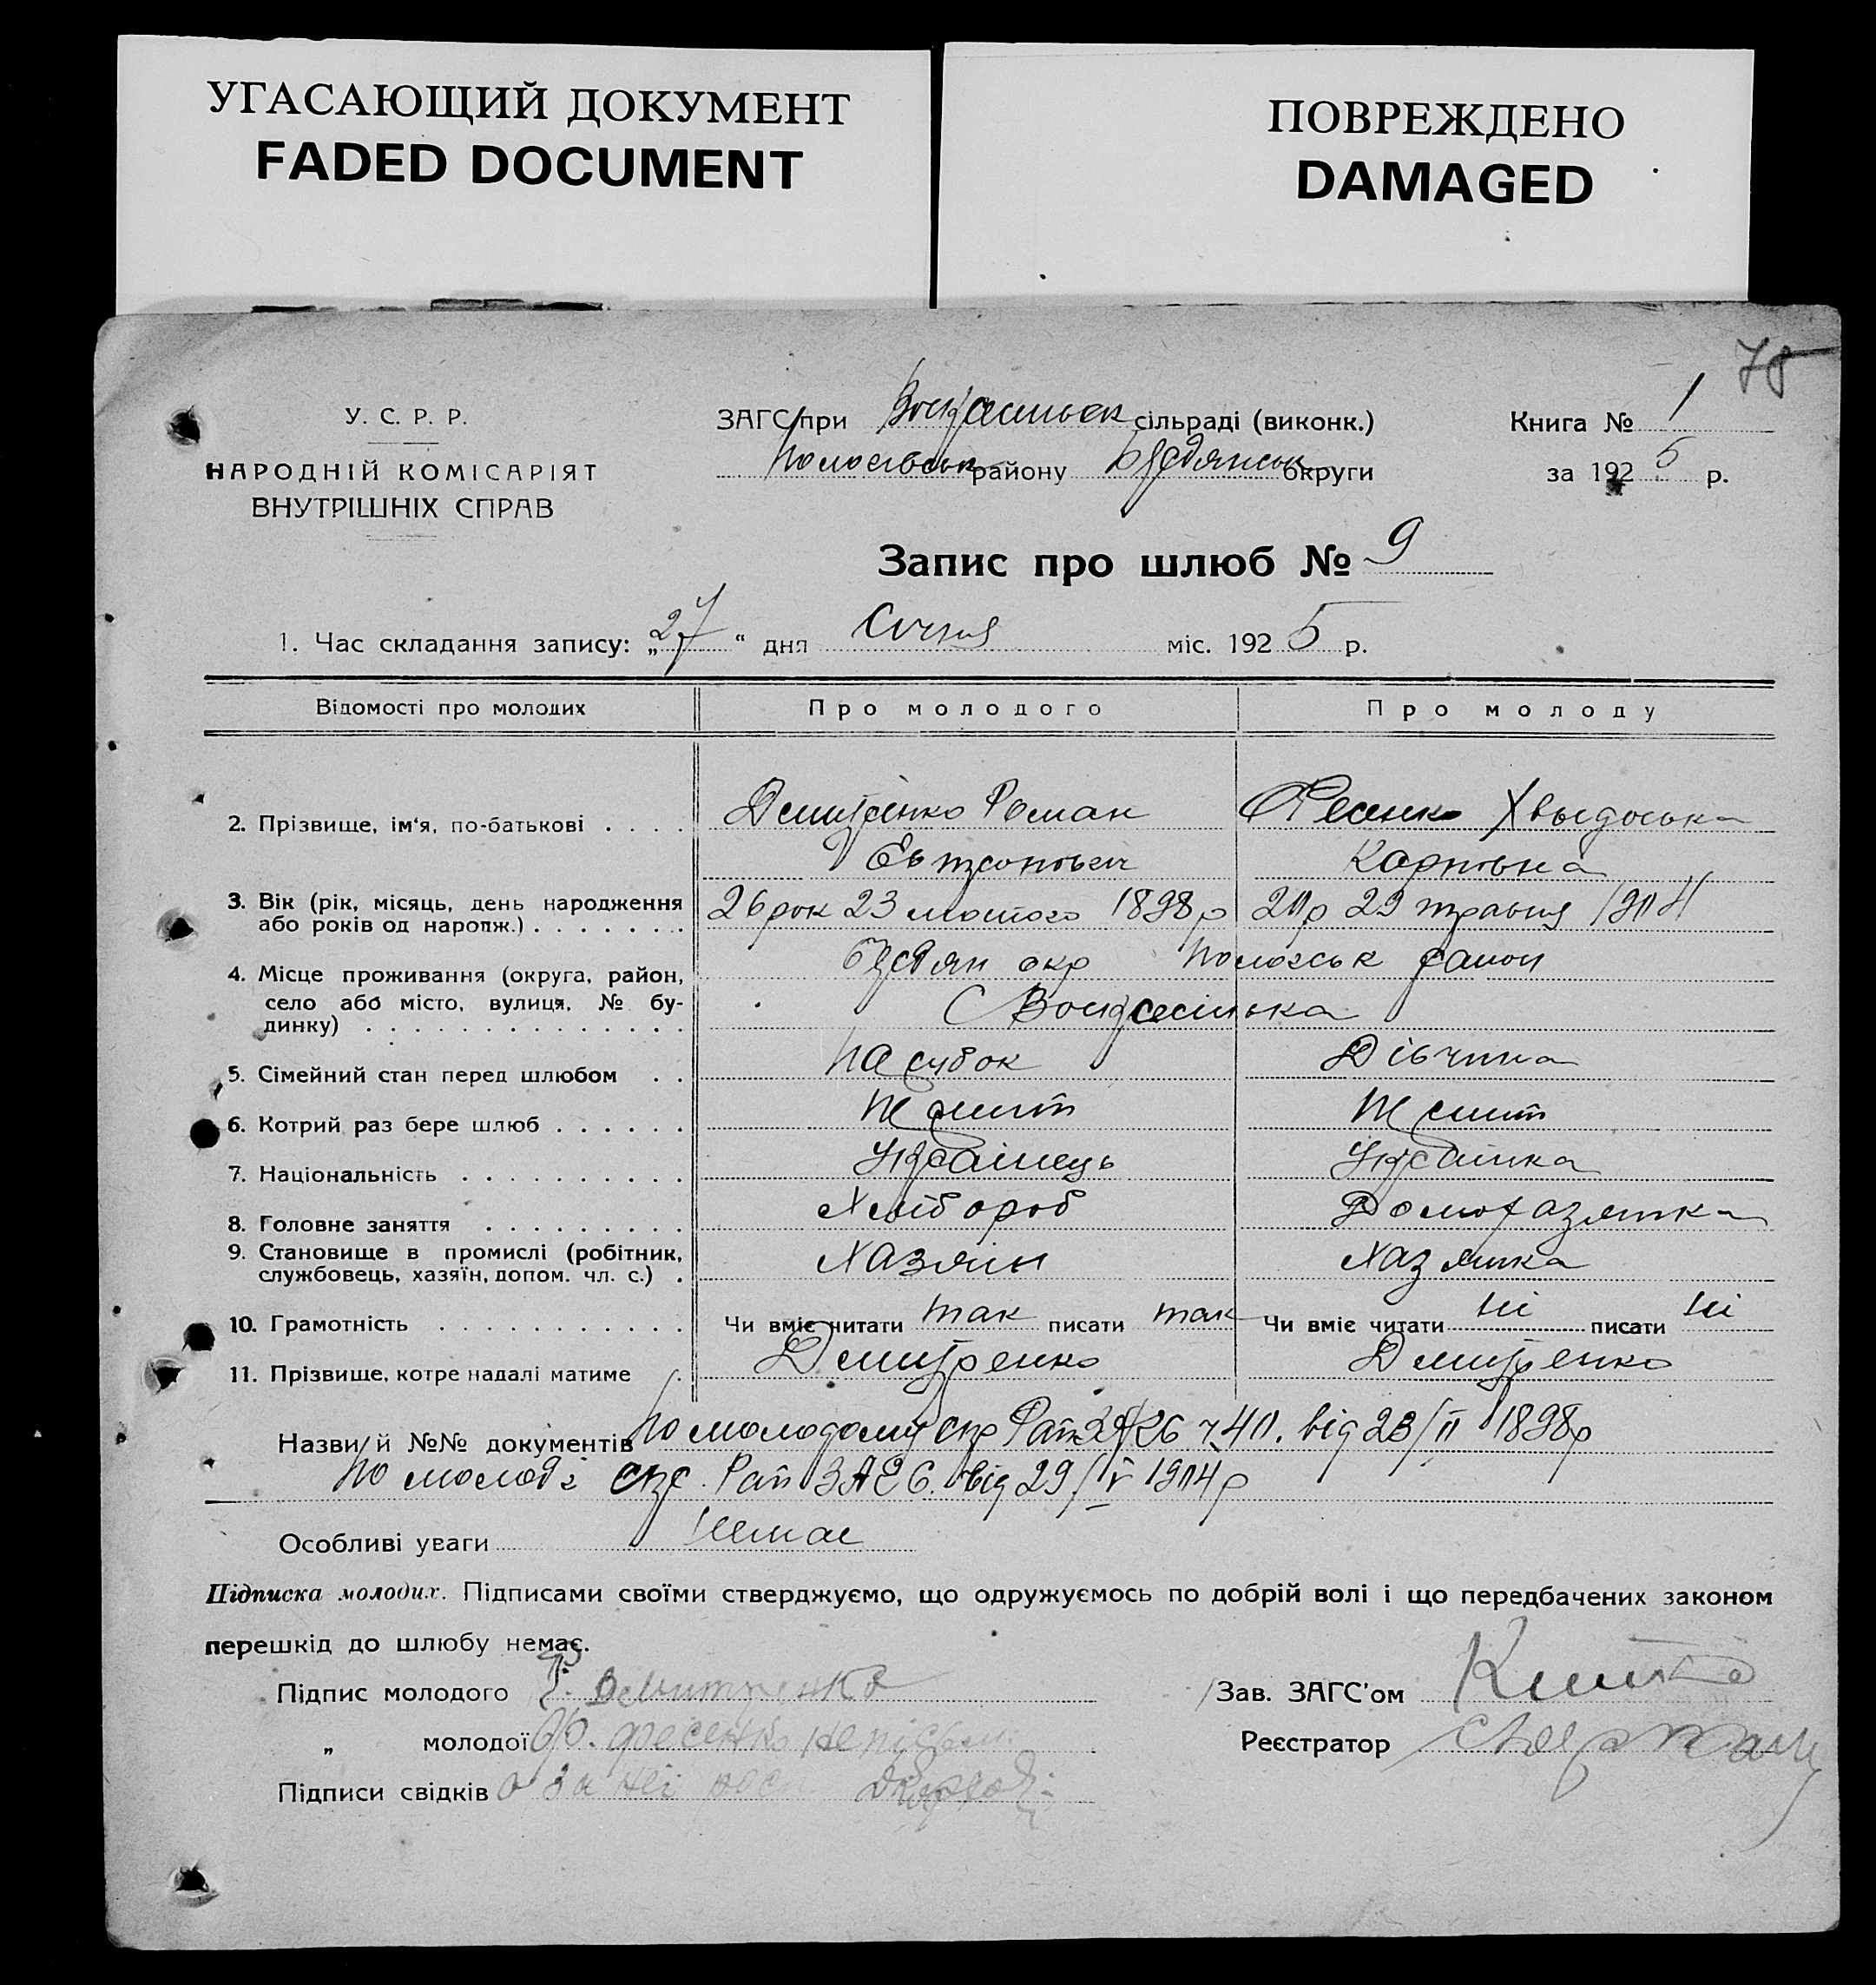 УГАСАЮЩИЙ ДОКУМЕНТ
FADED DOCUMENT
ПОВРЕЖДЕНО
DAMAGED
78
У. С. Р. Р.
НАРОДНІЙ КОМІСАРІЯТ
ВНУТРІШНІХ СПРАВ
ЗАГС при сільраді (виконк.)
району Бердянськ округи
Книга № 1
за 1925 р.
Запис про шлюб № 9
1. Час складання запису: „27“ дня Січня міс. 1925 р.
Відомості про молодих
Про молодого
Про молоду
2. Прізвище, ім'я, по-батькові
Дмитренко Роман
Фесенко Хвыдоська
Карповна
3. Вік (рік, місяць, день народження
або років од народж.)
26 рок 23 лютого 1898 р
20 р 29 травня 1904
4. Місце проживання (округа, район,
село або місто, вулиця, № бу-
динку)
Бердян окр Пологськ район
С Воскресенька
5. Сімейний стан перед шлюбом
Парубок
Дівчина
6. Котрий раз бере шлюб
Перший
Перший
7. Національність
Українець
Українка
8. Головне заняття
Хлібороб
Домохазяйка
9. Становище в промислі (робітник,
службовець, хазяїн, допом. чл. с.)
Хазяїн
Хазяйка
10. Грамотність
Чи вміє читати так писати так
Чи вміє читати ні писати ні
11. Прізвище, котре надалі матиме
Дмитренко
Дмитренко
Назви й №№ документів По молодому від 23/II 1898 р
По молоді ЗАГС від 29/V 1904 р
Особливі уваги Немае
Підписка молодих. Підписами своїми стверджуємо, що одружуємось по добрій волі і що передбачених законом
перешкід до шлюбу немає.
Підпис молодого Р. Дмитренко
„ молодої Ф. Фесенко
Підписи свідків а за неї
Зав. ЗАГС'ом
Реєстратор